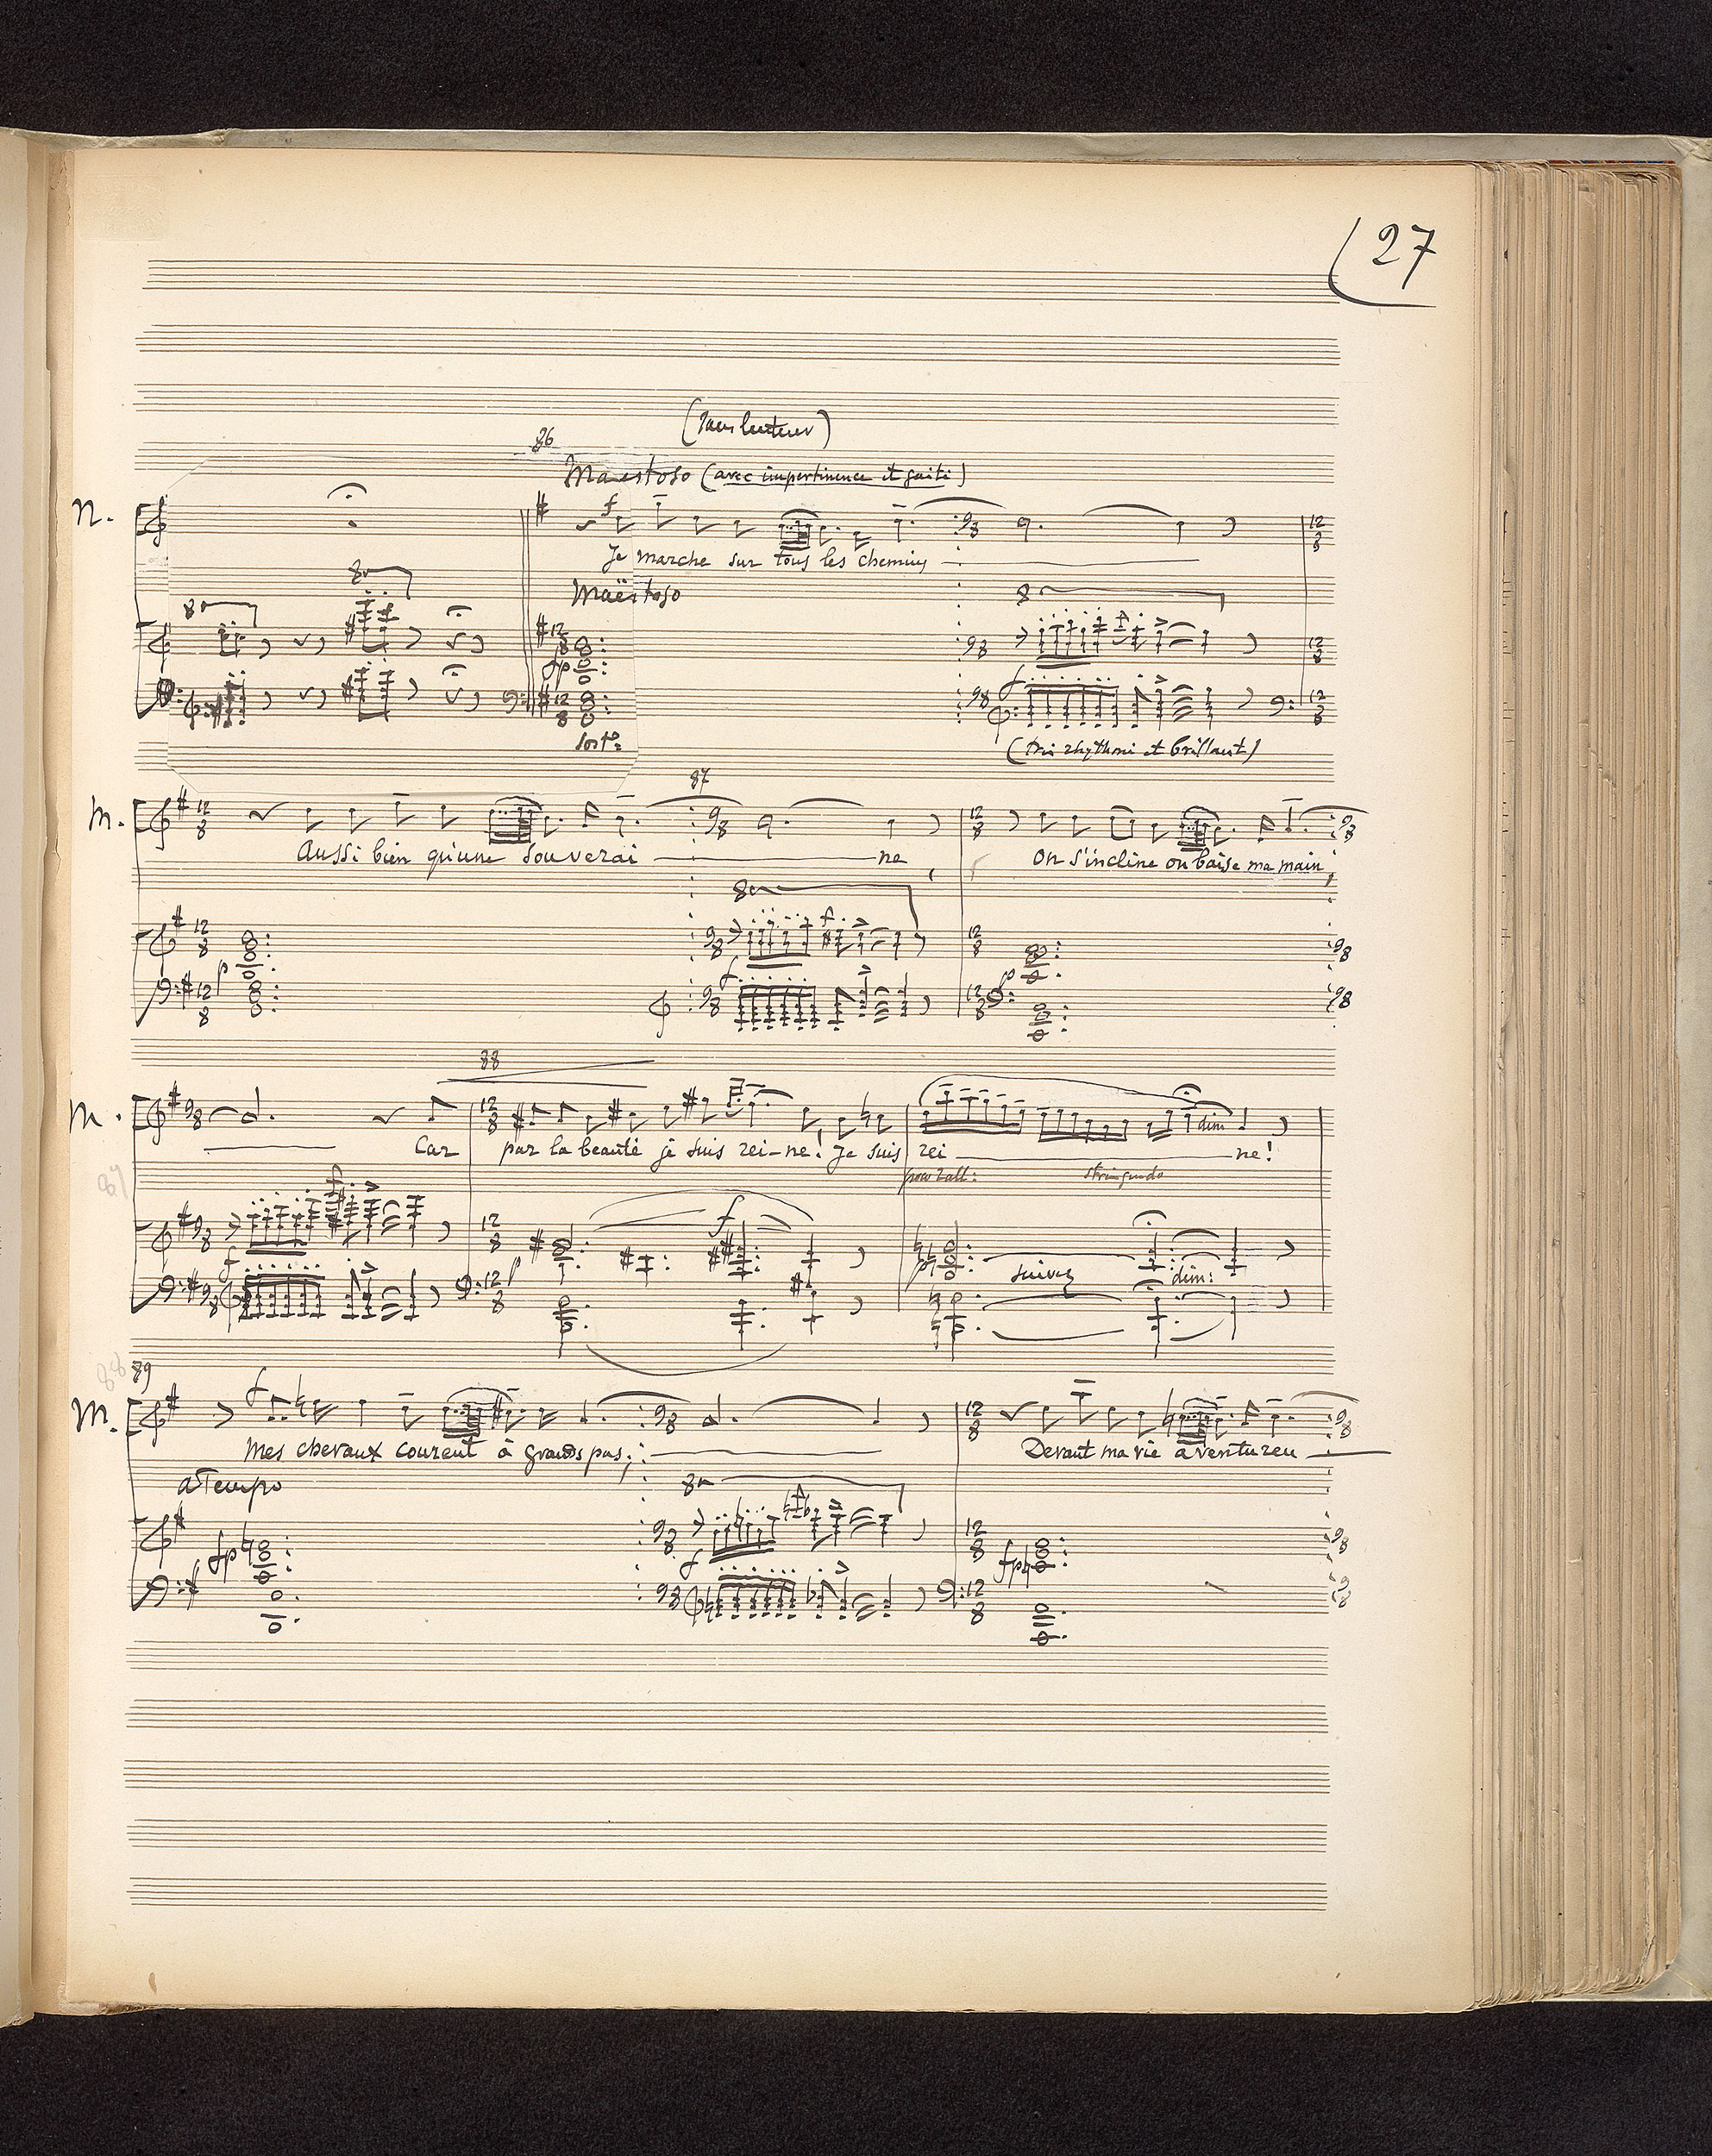 27
(sans lenteur)
86
Maestoso (avec impertinence et gaîté)
M.
f
Je marche sur tous les chemins
Maëstoso
8
8
8
12
8
9
8
12
8
fp
sost°
f
(très rhythmé et brillant)
87
M.
12
8
9
8
12
8
9
8
Aussi bien qu'une souverai ne
On s'incline on baise ma main,
8
p
f
p
88
M.
9
8
12
8
dim
Car par la beauté je suis rei-ne! Je suis rei ne!
poco rall:
stringendo
89
f
f
p
suivez
dim:
88 89
M.
f
9
8
12
8
9
8
Mes chevaux courent à grands pas;
Devant ma vie aventureu
a Tempo
8
fp
f
fp